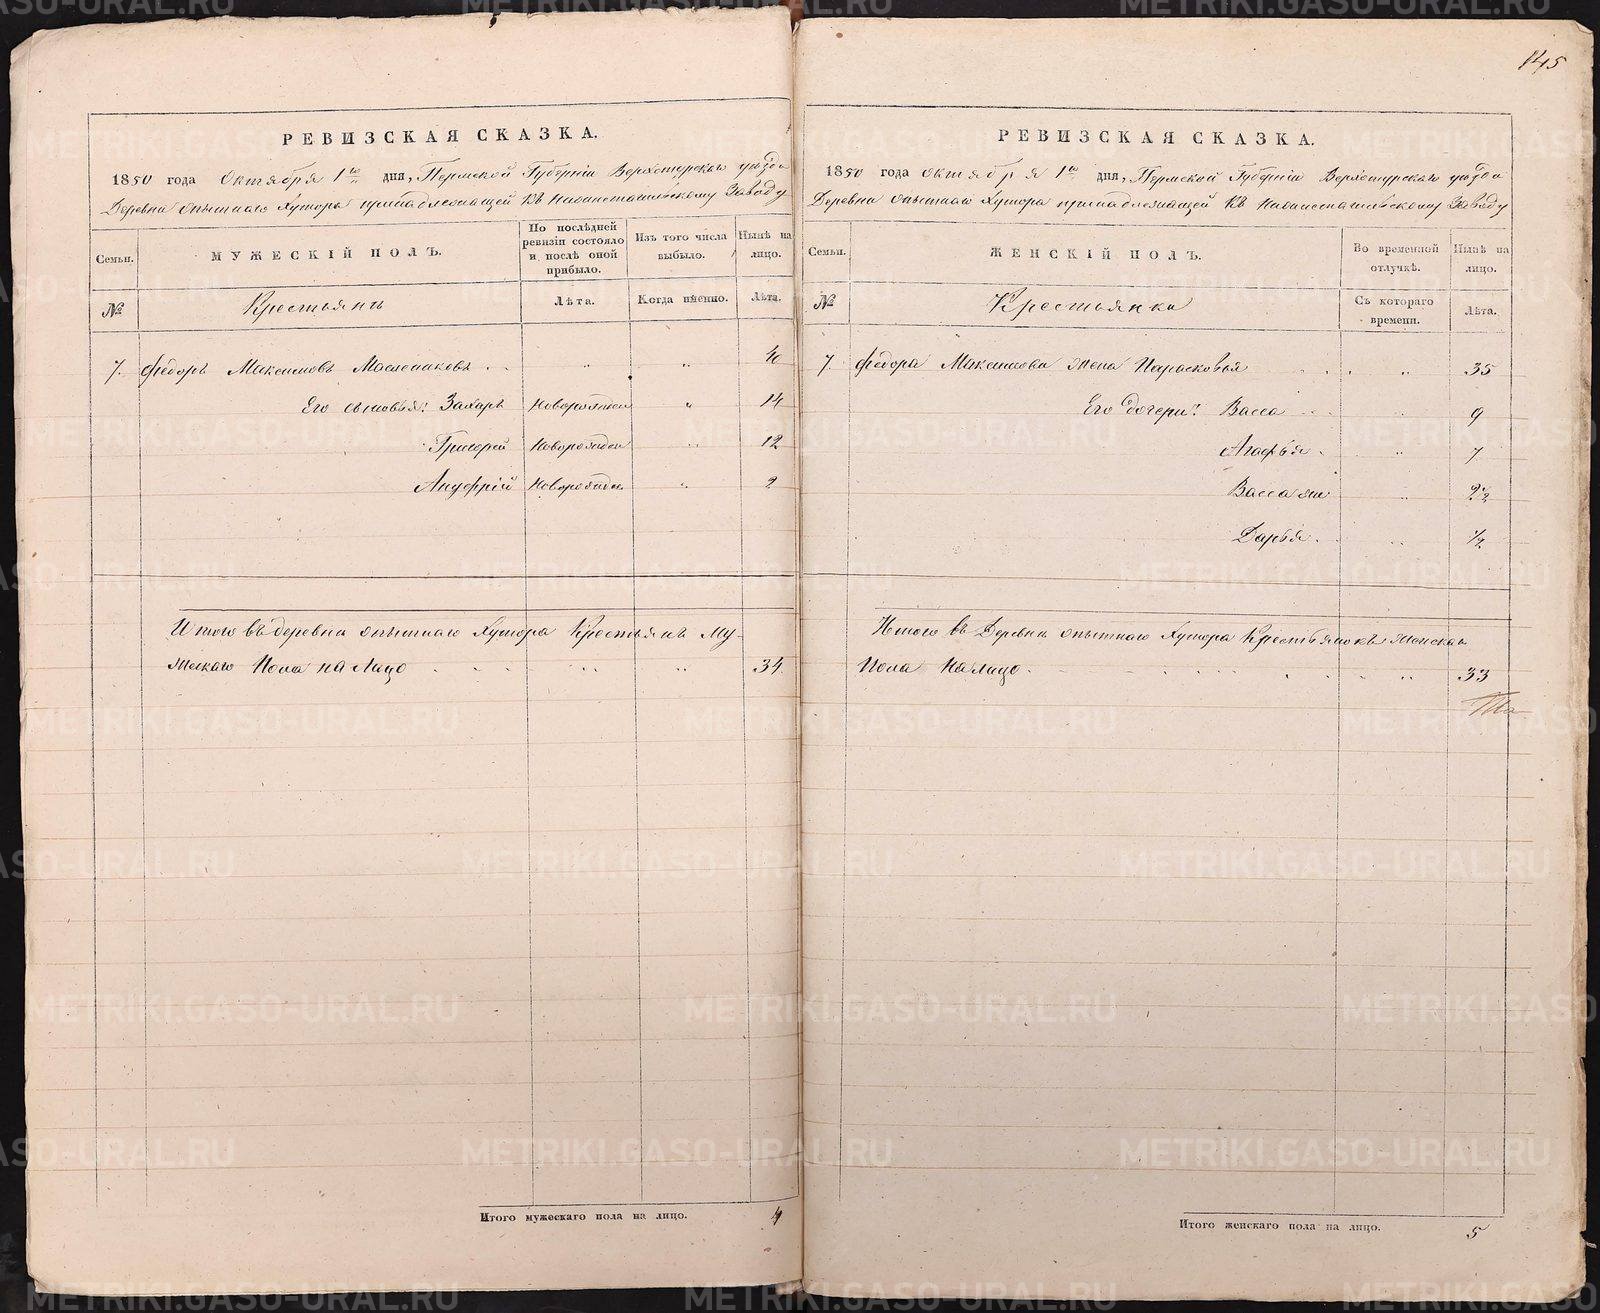 145
РЕВИЗСКАЯ СКАЗКА.
1850 года Октября 1го дня, Пермской Губерніи Верхотурскаго уѣзда
Деревни опытнаго Хутора принадлежащей къ Нижнетагильскому Заводу
Семьи.
МУЖЕСКІЙ ПОЛЪ.
По послѣдней ревизіи состояло и послѣ оной прибыло.
Изъ того числа выбыло.
Нынѣ на лицо.
№
Крестьянъ
Лѣта.
Когда именно.
Лѣта.
7. Федоръ Максимовъ Маслениковъ . . " " 40
Его сыновья: Захаръ Новорожден " 14
Григорій Новорожден " 12
Новорожден " 2
Итого въ деревни опытнаго Хутора Крестьянъ Му-
жескаго Пола на Лицо 34
Итого мужескаго пола на лицо. 4
РЕВИЗСКАЯ СКАЗКА.
1850 года Октября 1го дня, Пермской Губерніи Верхотурскаго уѣзда
Деревни опытнаго Хутора принадлежащей къ Нижнетагильскому Заводу
Семьи.
ЖЕНСКІЙ ПОЛЪ.
Во временной отлучкѣ.
Нынѣ на лицо.
№
Крестьянки
Съ котораго времени.
Лѣта.
7. Федора Максимова жена Парасковья " 35
Его дочери: Васса " 9
Агафья " 7
Васса же " 2½
Дарья " ½
Итого въ Деревни опытнаго Хутора Крестьянокъ женскаго
Пола на лицо 33
Итого женскаго пола на лицо. 5
METRIKI.GASO-URAL.RU